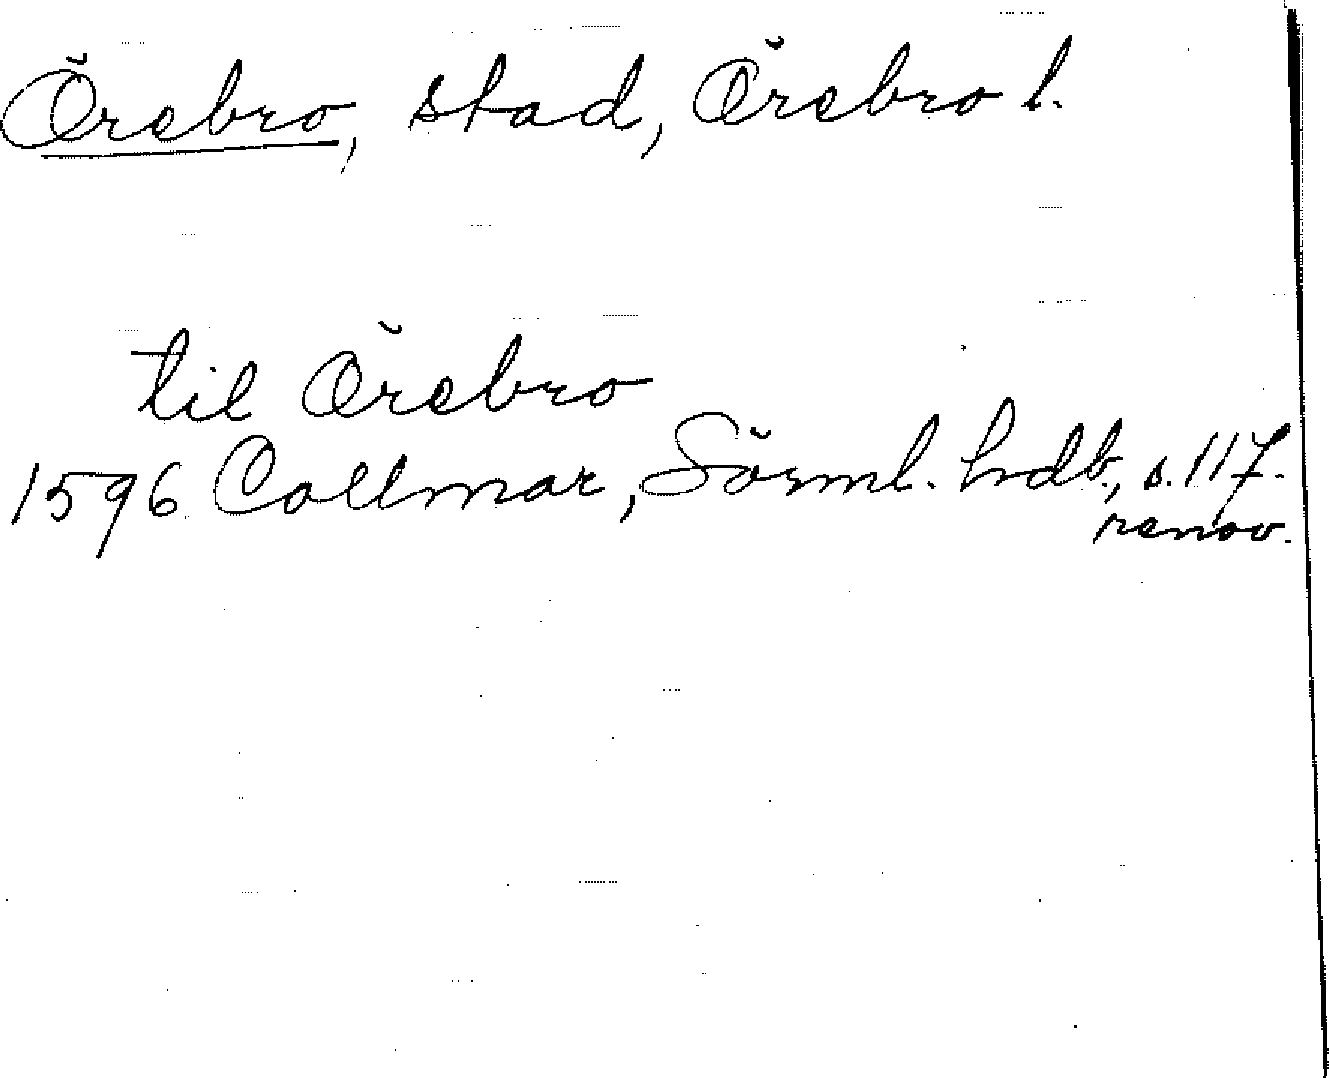 Örebro, stad, Örebro l.
til Örebro
1596 Collmar, Sörml. hdb, s. 117.
renov.